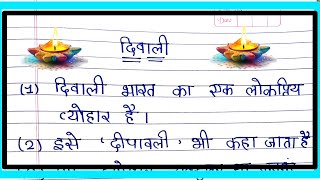 दिवाली
(1) दिवाली भारत का एक लोकप्रिय
त्योहार है।
(2) इसे 'दीपावली' भी कहा जाता है